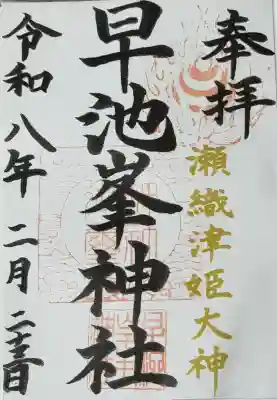 奉拝
瀬織津姫大神
早池峯神社
令和八年二月二十三日